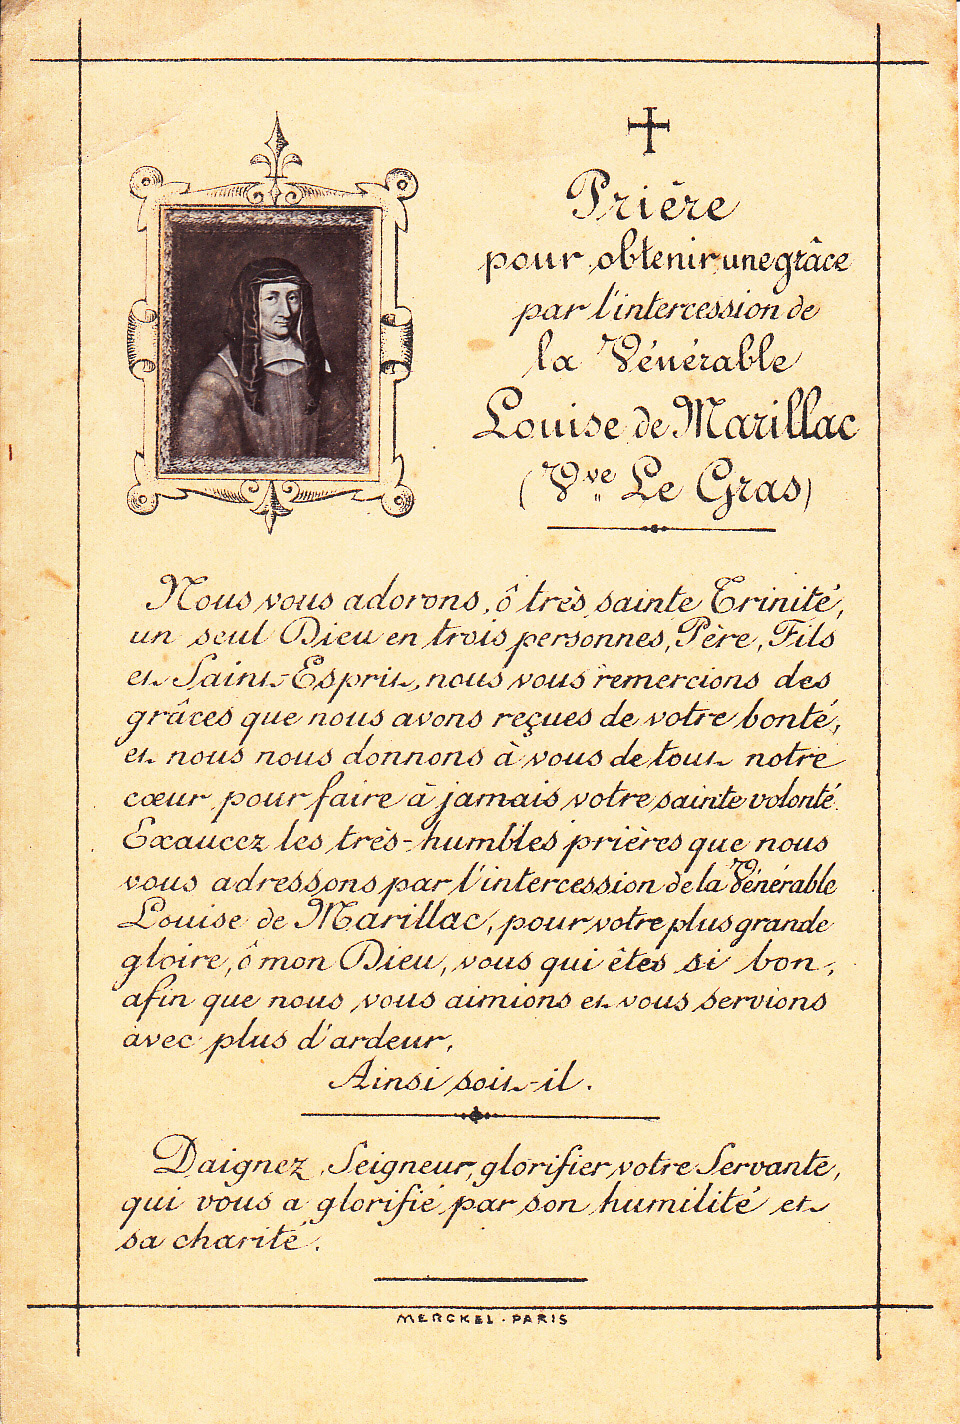 Prière
pour obtenir une grâce
par l'intercession de
la Vénérable
Louise de Marillac
(Vve Le Gras)
Nous vous adorons, ô très sainte Trinité,
un seul Dieu en trois personnes, Père, Fils
et Saint-Esprit, nous vous remercions des
grâces que nous avons reçues de votre bonté,
et nous nous donnons à vous de tout notre
cœur pour faire à jamais votre sainte volonté.
Exaucez les très-humbles prières que nous
vous adressons par l'intercession de la Vénérable
Louise de Marillac, pour votre plus grande
gloire, ô mon Dieu, vous qui êtes si bon,
afin que nous vous aimions et vous servions
avec plus d'ardeur,
Ainsi soit-il.
Daignez, Seigneur, glorifier votre Servante,
qui vous a glorifié par son humilité et
sa charité.
MERCKEL-PARIS